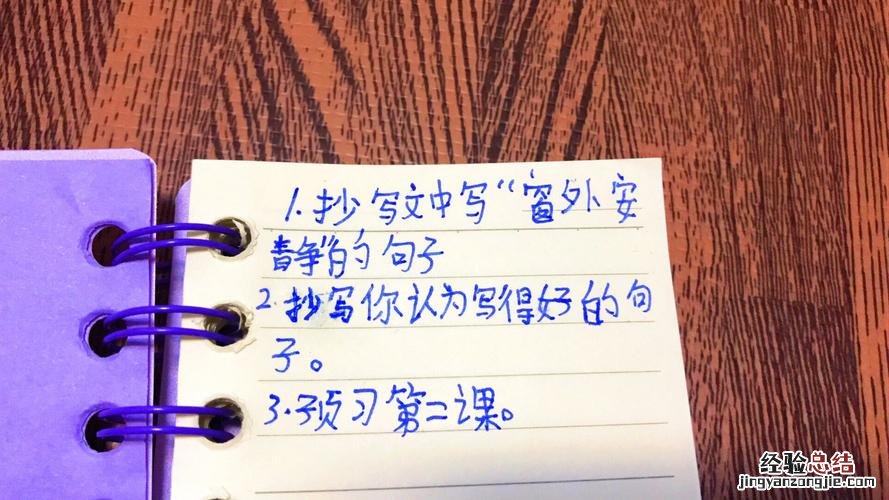 1.抄写文中写“窗外安
静”的句子
2.抄写你认为写得好的句
子。
3.预习第二课。
经验总结
jingyanzongjie.com